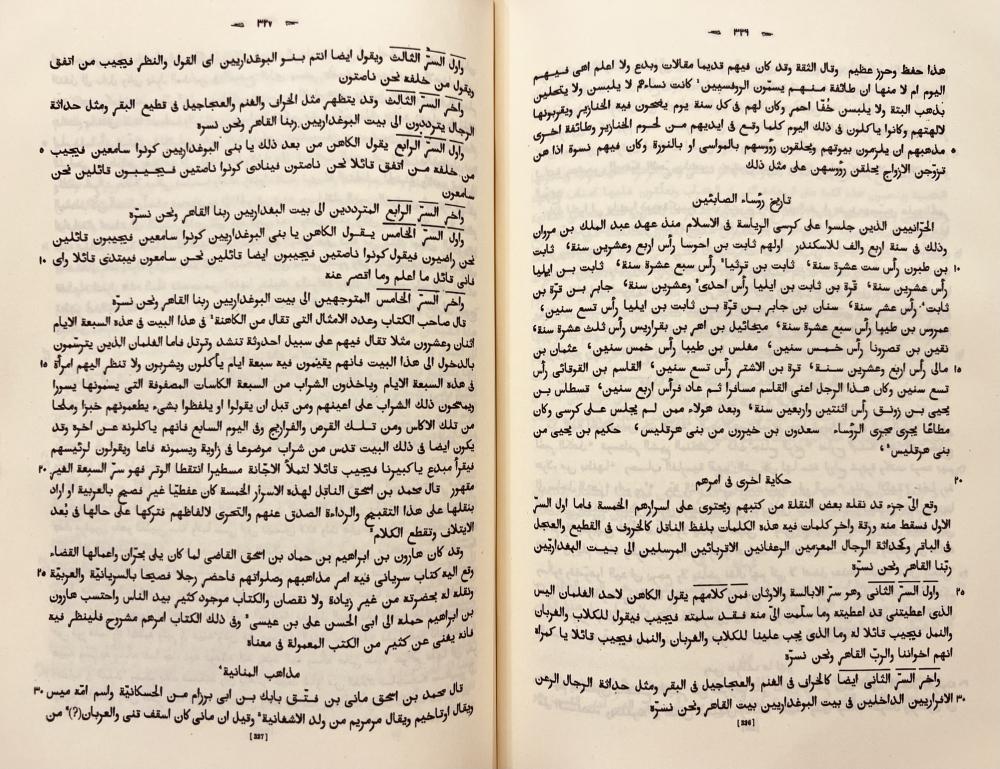 ٣٢٦
هذا حفظ وحرز عظيم وقال الثقة وقد كان فيهم قديما مقالات وبدع ولا اعلم اهى فيهم
اليوم ام لا منها ان طائفة منهم يسمّون الروفسيين كانت نساءهم لا يلبسن ولا يتحلين
بذهب البتة ولا يلبسن خُفّا احمر وكان لهم فى كل سنة يوم يضحون فيه الخنازير ويقربونها
لالهتهم وكانوا ياكلون فى ذلك اليوم كلما وقع فى ايديهم من لحوم الخنازير وطائفة اخرى
٥ مذهبهم ان يلزمون بيوتهم ويحلقون رؤوسهم بالمواسى او بالنورة وكان فيهم نسوة اذا عن
تزوّجن الازواج يحلقن رؤوسهن على مثل ذلك
تاريخ رؤساء الصابئين
الحرّانيين الذين جلسوا على كرسى الرياسة فى الاسلام منذ عهد عبد الملك بن مروان
وذلك فى سنة اربع والف للاسكندر اولهم ثابت بن احوسا رأس اربع وعشرين سنة، ثابت
١٠ بن طبون رأس ست عشرة سنة، ثابت بن قرثيا رأس سبع عشرة سنة، ثابت بن ايليا
رأس عشرين سنة، قرة بن ثابت بن ايليا رأس احدى وعشرين سنة، جابر بن قرة بن
ثابت رأس عشر سنة، سنان بن جابر بن قرّة بن ثابت بن ايليا رأس تسع سنين،
عمروس بن طيبا رأس سبع عشرة سنة، ميخائيل بن اهر بن بقراريس رأس ثلث عشرة سنة،
نقين بن قصرونا رأس خمس سنين، مغلس بن طيبا رأس خمس سنين، عثمان بن
١٥ مالى رأس اربع وعشرين سنة، قرة بن الاشتر رأس تسع سنين، القاسم بن القوقائى رأس
تسع سنين وكان هذا الرجل اعنى القاسم مسافرا ثم عاد فرأس اربع سنين، قسطاس بن
يحيى بن زونق رأس اثنتين واربعين سنة، وبعد هولاء ممن لم يجلس على كرسى وكان
مطاعًا يجرى مجرى الرؤساء سعدون بن خيرون من بنى هرقليس، حكيم بن يحيى من
بنى هرقليس،
٢٠ حكاية اخرى فى امرهم
وقع الىّ جزء قد نقله بعض النقلة من كتبهم ويحتوى على اسرارهم الخمسة فاما اول السرّ
الاول فسقط منه ورقة واخر كلمات فيه هذه الكلمات بلفظ الناقل كالخروف فى القطيع والعجل
فى الباقر وكحداثة الرجال المعزمين الرعفانين الاقربائين المرسلين الى بيت البغداريّين
ربّنا القاهر ونحن نسرّه
٢٥ واول السرّ الثانى وهو سرّ الابالسة والاوثان فمن كلامهم يقول الكاهن لاحد الغلمان اليس
الذى اعطيتنى قد اعطيته وما سلّمت الىّ منه فقد سلمته فيجيب فيقول للكلاب والغربان
والنمل فيجيب قائلا له وما الذى يجب علينا للكلاب والغربان والنمل فيجيب قائلا يا كمراه
انهم اخواننا والربّ القاهر ونحن نسرّه
واخر السرّ الثانى ايضا كالخراف فى الغنم والعجاجيل فى البقر ومثل حداثة الرجال الرعن
٣٠ الافراريين الداخلين فى بيت البوغداريين بيت القاهر ونحن نسرّه
[326]
٣٢٧
واول السرّ الثالث ويقول ايضا انتم بنو البوغداريين اى القول والنظر فيجيب من اتفق
ويقول من خلفه نحن ناصتون
واخر السرّ الثالث وقد يتظهر مثل الخراف والغنم والعجاجيل فى قطيع البقر ومثل حداثة
الرجال يترددون الى بيت البوغداريين ربنا القاهر ونحن نسره
٥ واول السرّ الرابع يقول الكاهن من بعد ذلك يا بنى البوغداريين كونوا سامعين فيجيب
من خلفه من اتفق قائلا نحن ناصتون فينادى كونوا ناصتين فيجيبون قائلين نحن
سامعون
واخر السرّ الرابع المترددين الى بيت البغداريين ربنا القاهر ونحن نسرّه
واول السرّ الخامس يقول الكاهن يا بنى البوغداريين كونوا سامعين فيجيبون قائلين
١٠ نحن راضيون فيقول كونوا ناصتين فيجيبون ايضا قائلين نحن سامعون فيبتدى قائلا واى
فانى قائل ما اعلم وما اقصر عنه
واخر السرّ الخامس المتوجهين الى بيت البوغداريين ربنا القاهر ونحن نسرّه
قال صاحب الكتاب وعدد الامثال التى تقال من الكاهنة فى هذا البيت فى هذه السبعة الايام
اثنان وعشرون مثلا تقال فيهم على سبيل احدوثة تنشد وترتل فاما الغلمان الذين يترسّمون
١٥ بالدخول الى هذا البيت فانهم يقيمون فيه سبعة ايام يأكلون ويشربون ولا تنظر اليهم امرأة
فى هذه السبعة الايام وياخذون الشراب من السبعة الكاسات المصفوفة التى يسمونها يسورا
ويمسحون ذلك الشراب على اعينهم ومن قبل ان يقولوا او يلفظوا بشىء يطعمونهم خبزا وملحا
من تلك الاكاس ومن تلك القرص والفراريج وفى اليوم السابع فانهم ياكلونه عن اخره وقد
يكون ايضا فى ذلك البيت قدس من شراب موضوعا فى زاوية ويسمونه فاعا ويقولون لرئيسهم
٢٠ فيقرأ مبدع ياكبيرنا فيجيب قائلا لتملأ الاجّانة مسطيرا انتقطا الوتر فهو سرّ السبعة الغير
مقهور قال محمد بن اسحق الناقل لهذه الاسرار الخمسة كان عفطيًا غير فصيح بالعربية او اراد
بنقلها على هذا التقبيح والرداءة الصدق عنهم والتحرى لالفاظهم فتركها على حالها فى بُعد
الايتلاف وتقطع الكلام
وقد كان هارون بن ابراهيم بن حماد بن اسحق القاضى لما كان يلى بحرّان واعمالها القضاء
٢٥ وقع اليه كتاب سريانى فيه امر مذاهبهم وصلواتهم فاحضر رجلا فصيحا بالسريانيّة والعربيّة
ونقله له بحضرته من غير زيادة ولا نقصان والكتاب موجود كثير بيد الناس واحتسب هارون
بن ابراهيم حمله الى ابى الحسن على بن عيسى وفى ذلك الكتاب امرهم مشروح فلينظر فيه
فانه يغنى عن كثير من الكتب المعمولة فى معناه
مذاهب المنانية،
٣٠ قال محمد بن اسحق مانى بن فتق بابك بن ابى برزام من الحسكانيّة واسم امّه ميس
ويقال اوتاخيم ويقال مرمريم من ولد الاشغانية وقيل ان مانى كان اسقف قنى والعربان(?) من
[327]